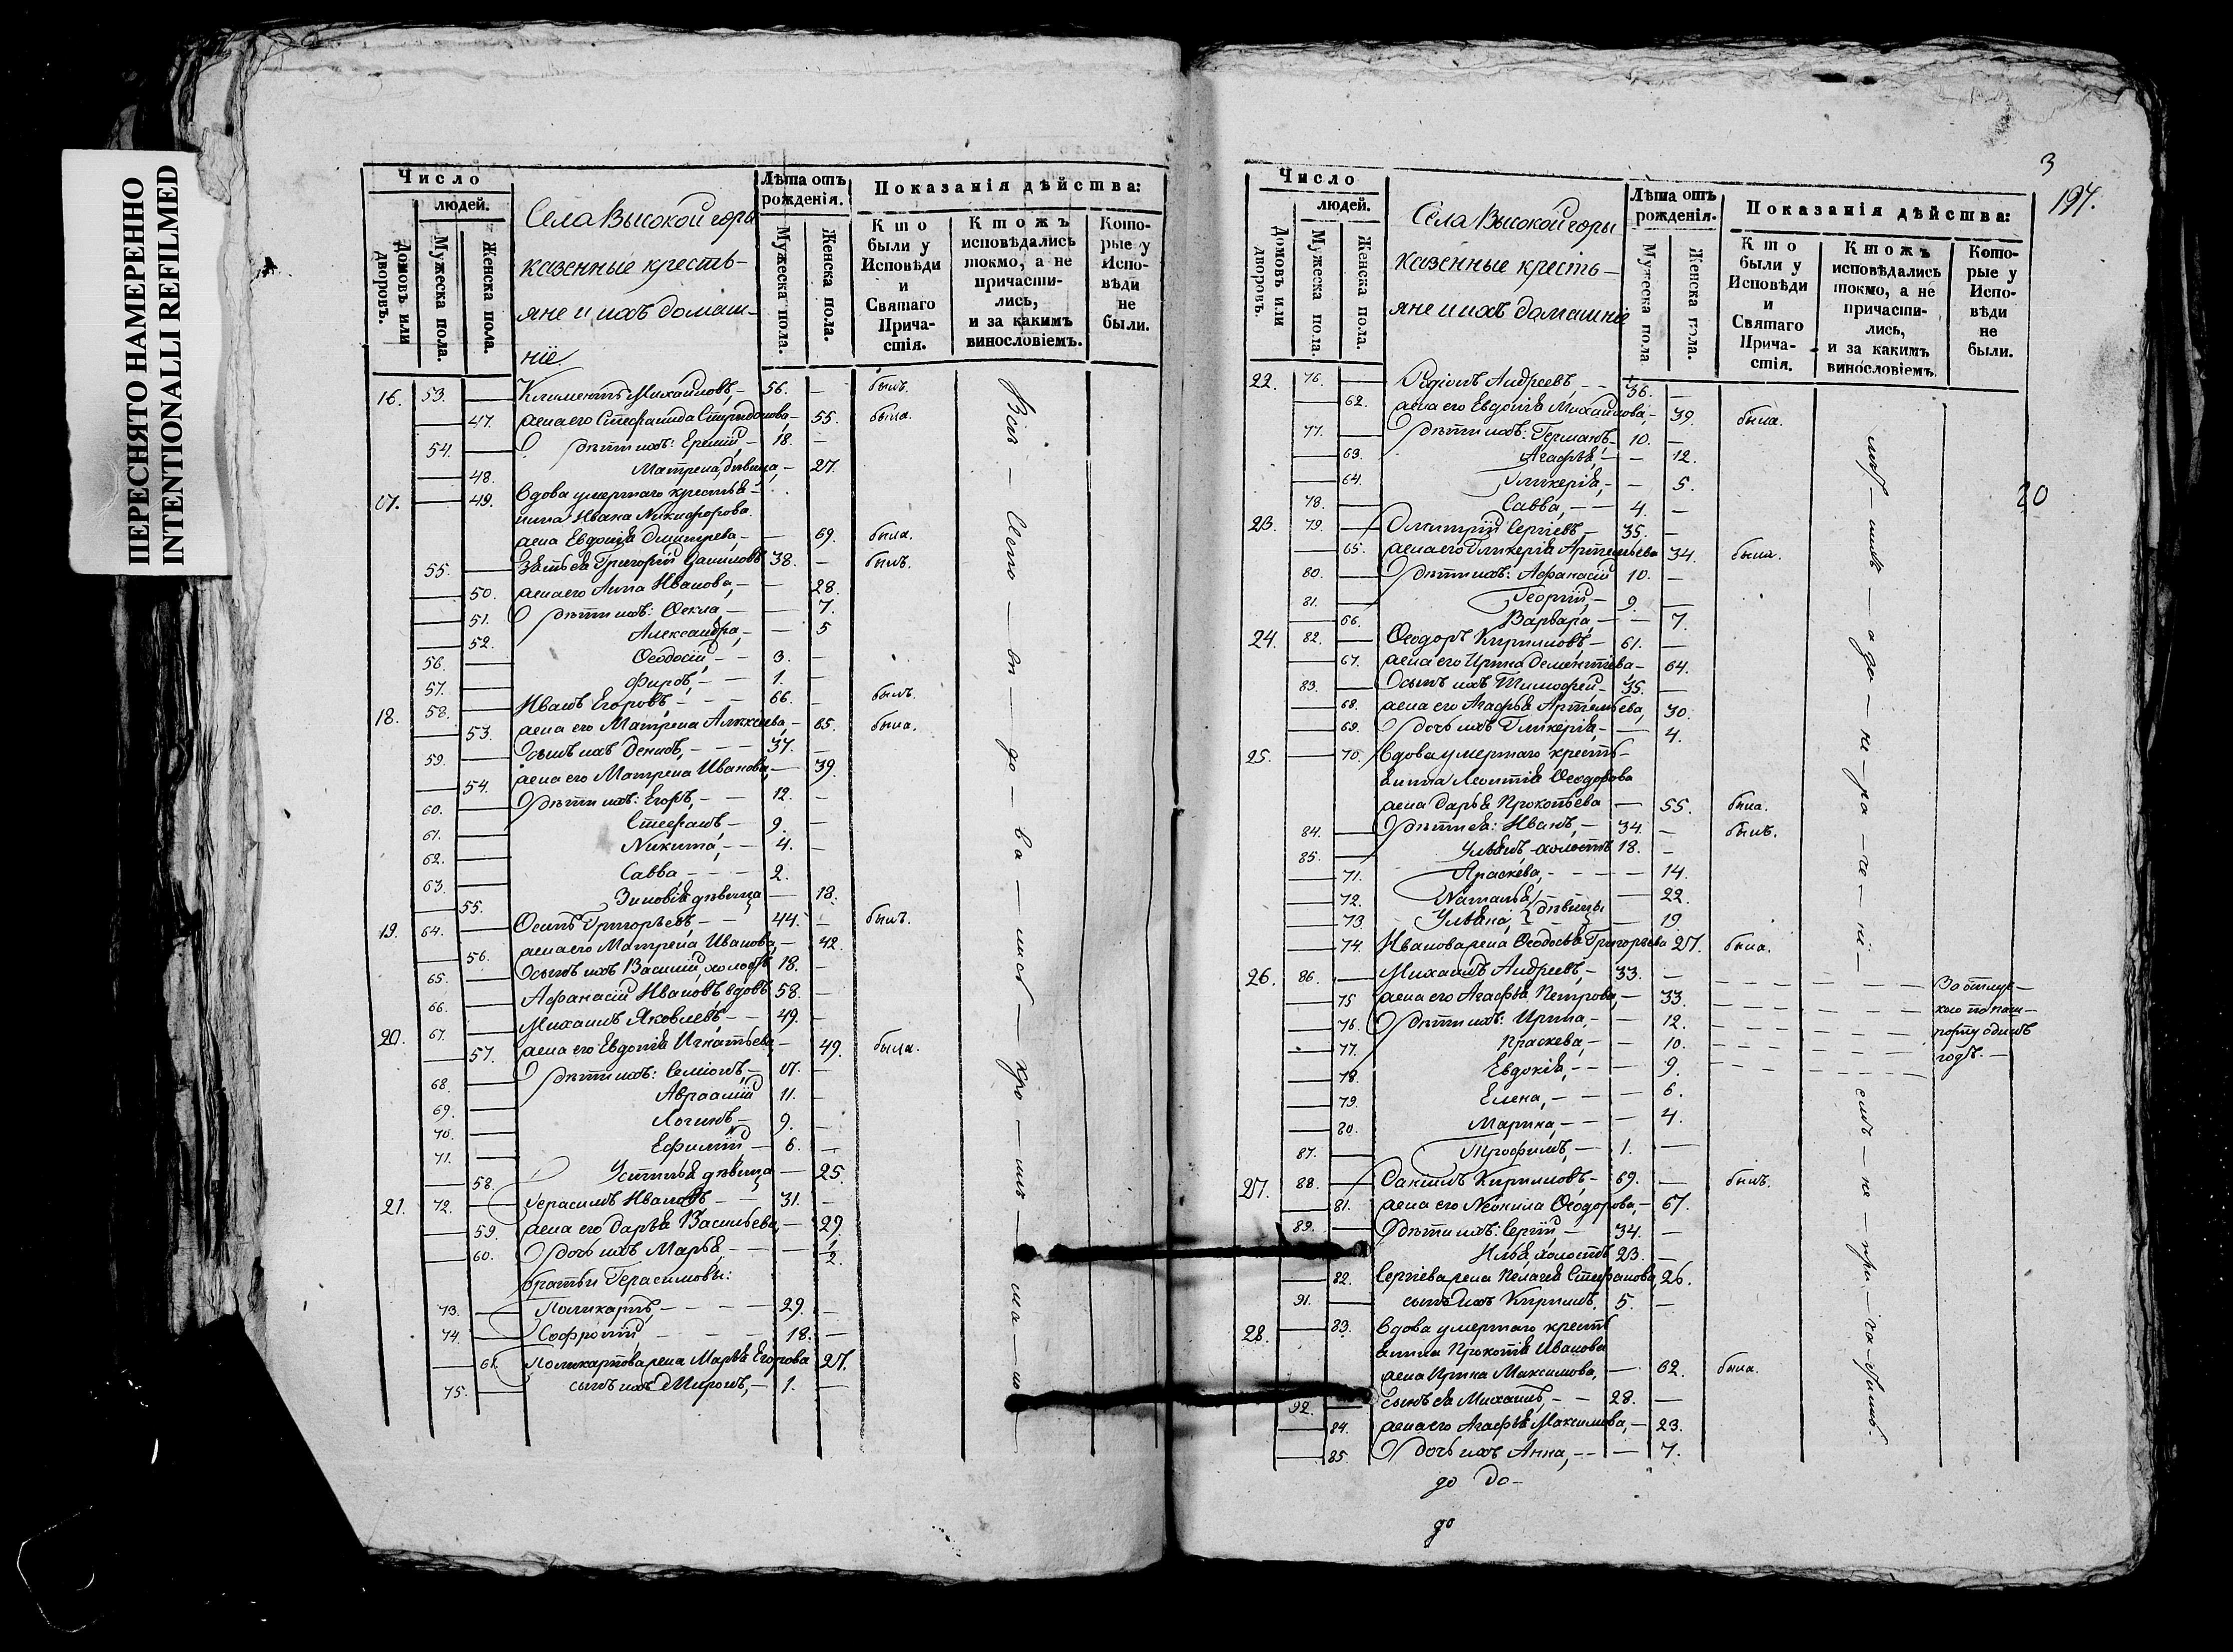 ПЕРЕСНЯТО НАМЕРЕННО
INTENTIONALLI REFILMED
Число
людей.
Домовъ или дворовъ.
Мужеска пола.
Женска пола.
Села Высокой горы
казенные кресть-
яне и ихъ домаш-
ніе.
Лѣта отъ рожденія.
Мужеска пола.
Женска пола.
Показанія дѣйства:
Кто были у Исповѣди и Святаго Прича-стія.
Ктожъ исповѣдались токмо, а не причасти-лись, и за какимъ винословіемъ.
Кото-рые у Испо-вѣди не были.
16. 53. Климентъ Михайловъ, 56. – былъ.
47. жена его Стефанида Спиридонова, 55. была.
54. дѣти ихъ: Ермій, 18. –
48. Матрена, дѣвица, 27.
17. 49. Вдова умершаго крестья-
нина Ивана Никифорова
жена Евдокія Дмитрева, – 69. была.
55. Зять ея Григорій Даниловъ 38. – былъ.
50. жена его Анна Иванова, – 28.
51. дѣти ихъ: Ѳекла – 7.
52. Александра, – 5
56. Ѳеодосій, 3. –
57. Фирсъ, 1. –
18. 58. Иванъ Егоровъ, 66. – былъ.
53. жена его Матрена Алексеева, 65. была.
59. Сынъ ихъ Денисъ, 37. –
54. жена его Матрена Иванова, 39.
60. дѣти ихъ: Егоръ, 12. –
61. Стефанъ, 9. –
62. Никита, 4. –
63. Савва 2.
55. Зиновія дѣвица – 18.
19. 64. Осипъ Григорьевъ, 44. – былъ.
56. жена его Матрена Иванова, – 42.
65. Сынъ ихъ Василій, холостъ 18. –
66. Афанасій Ивановъ, вдовъ 58. –
20. 67. Михаилъ Яковлевъ, 49. –
57. жена его Евдокія Игнатьева, 49. была.
68. дѣти ихъ: Семіонъ, 17. –
69. Авраамій 11. –
70. Логинъ 9. –
71. Ефимій 6. –
58. Устинья дѣвица – 25.
21. 72. Герасимъ Ивановъ 31. –
59. жена его Дарья Васильева, – 29.
60. дочь ихъ Марья, – 1/2.
братьи Герасимовы:
73. Поликарпъ, 29. –
74. Софроній 18. –
61. Поликарпова жена Марья Егорова 27.
75. сынъ ихъ Миронъ, 1. –
3
197.
Число
людей.
Домовъ или дворовъ.
Мужеска пола.
Женска пола.
Села Высокой горы
казенные кресть-
яне и ихъ домашніе
Лѣта отъ рожденія.
Мужеска пола
Женска пола.
Показанія дѣйства:
Кто были у Исповѣди и Святаго Прича-стія.
Ктожъ исповѣдались токмо, а не причасти-лись, и за какимъ винословіемъ.
Кото-рые у Испо-вѣди не были.
22. 76. Родіонъ Андреевъ, 36. –
62. жена его Евдокія Михайлова, 39. была.
77. дѣти ихъ: Германъ, 10. –
63. Агафья, – 12.
64. Гликерія, – 5.
78. Савва, 4. –
20
23. 79. Дмитрій Сергіевъ, 35. –
65. жена его Гликерія Артемьева 34. была.
80. дѣти ихъ: Афанасій 10. –
81. Георгій, 9. –
66. Варвара, – 7.
24. 82. Ѳеодоръ Кирилловъ, 61. –
67. жена его Ирина Дементіева – 64.
83. Сынъ ихъ Тимофей 35. –
68. жена его Агафья Артемьева, 30.
69. дочь ихъ Гликерія, – 4.
25. 70. Вдова умершаго кресть-
янина Леонтія Ѳеодорова
жена Дарья Прокопьева – 55. была.
84. дѣти ея: Иванъ, 34. – былъ.
85. Ульянъ холостъ 18. –
71. Праскева, – 14.
72. Наталья, – 22.
73. Ульяна, дѣвицы – 19.
74. Иванова жена Ѳеодосья Григорьева 27. была.
26. 86. Михаилъ Андреевъ, 33. –
75 жена его Агафья Петрова, – 33.
76. дѣти ихъ: Ирина, – 12.
77. Праскева, – 10.
78. Евдокія, – 9.
79. Елена, – 6.
80. Марина, – 4.
За отлуч-
кою по паш-
порту одинъ
годъ.
87. Трофимъ, 1. –
27. 88. Данилъ Кирилловъ, 69. – былъ.
81. жена его Неонила Ѳеодорова, – 67.
89. дѣти ихъ: Сергій, 34. –
Илья, холостъ 23. –
82. Сергіева жена Пелагея Стефанова, 26.
91. сынъ ихъ Кириллъ, 5. –
28. 83. Вдова умершаго кресть
янина Прокопія Иванова
жена Ирина Максимова, – 62. была.
92. Сынъ ея Михаилъ, 28. –
84. жена его Агафья Максимова, – 23.
85. дочь ихъ Анна, – 7.
до до-
до